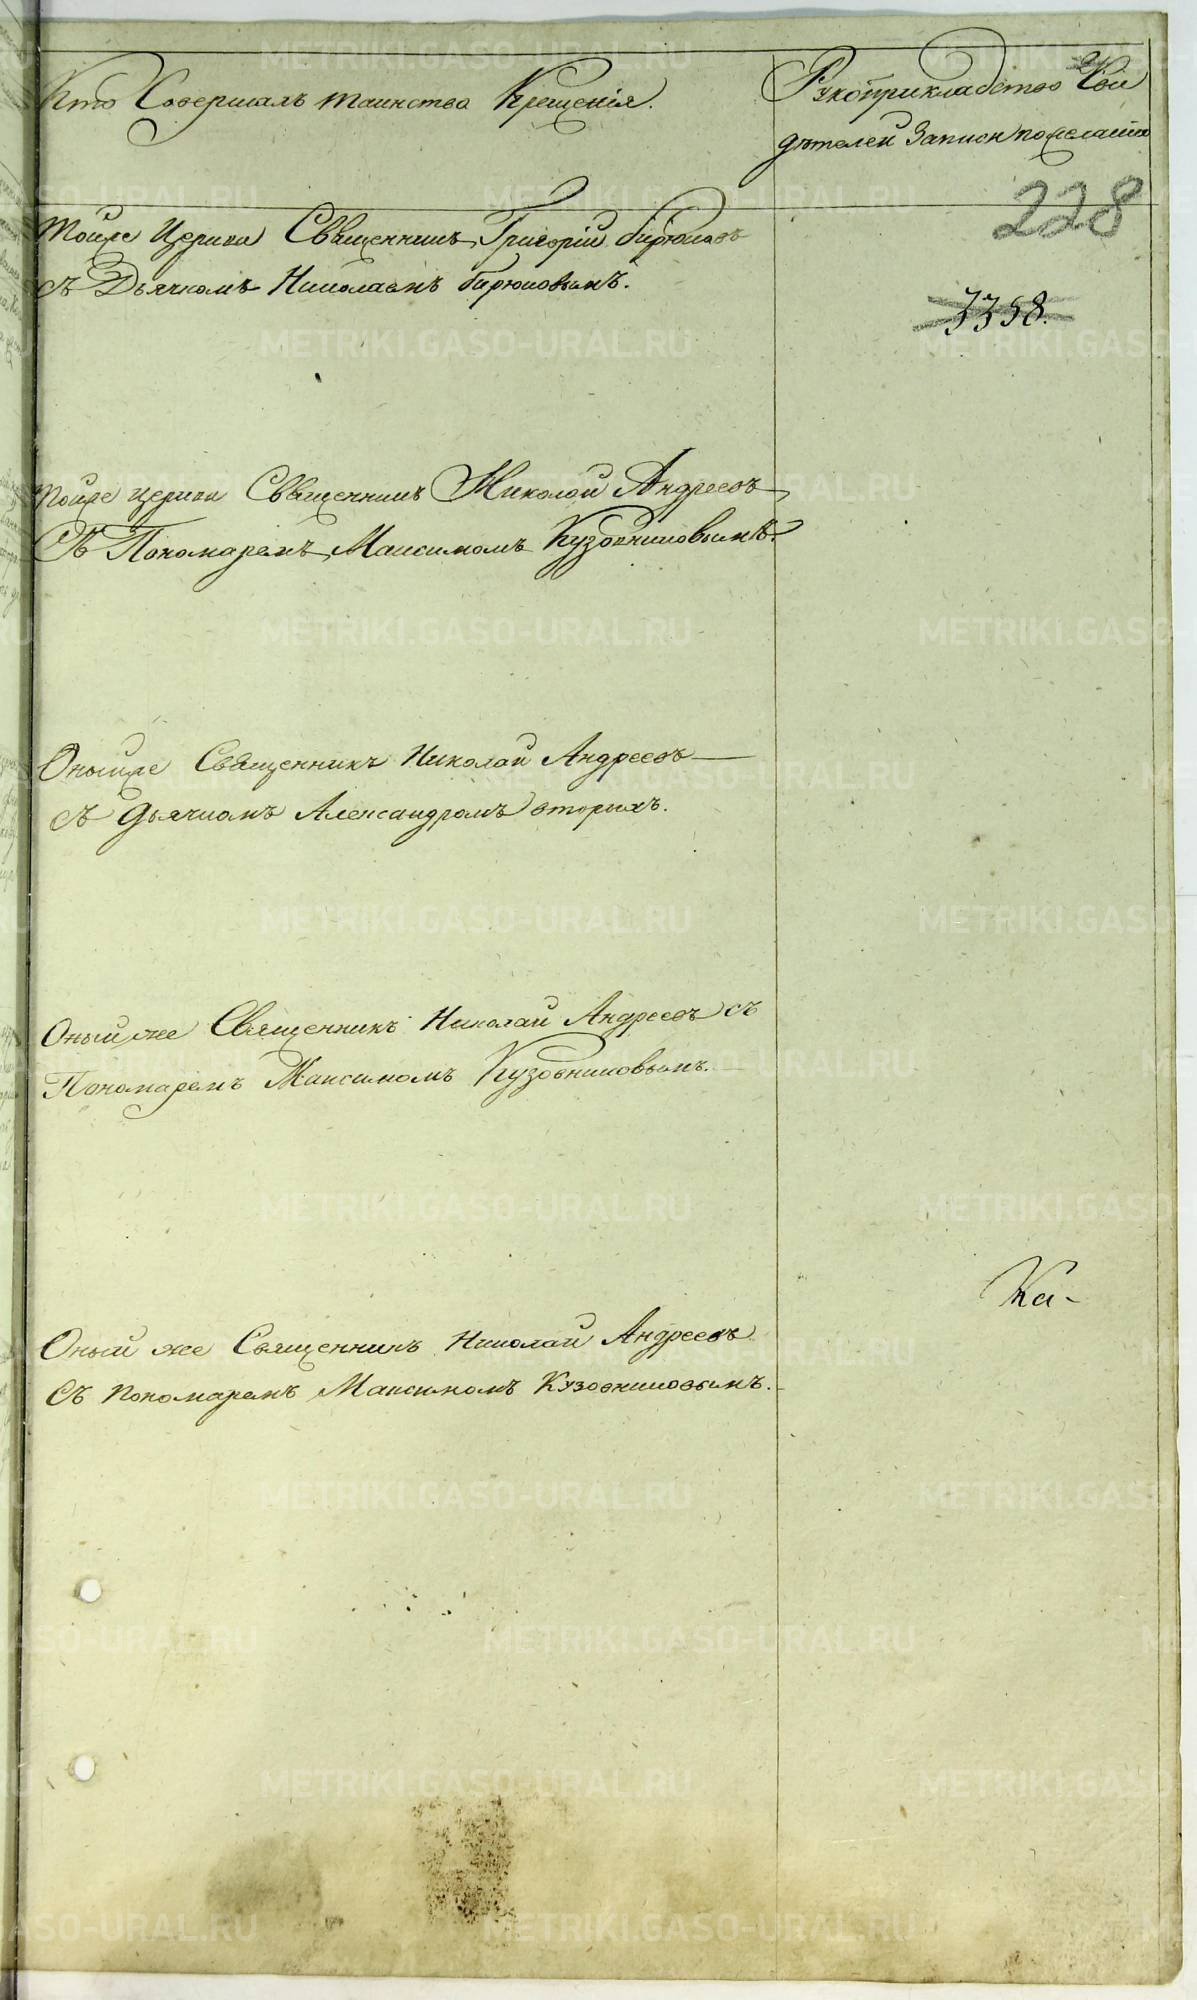 Кто Совершалъ таинство Крещенія.
Рукоприкладство Сви
дѣтелей Записи по желанію
228
Тойже Церкви Священникъ Григорій Бирюковъ
съ Дьячкомъ Николаемъ Бирюковымъ.
3358.
Тойже церкви Священникъ Николай Андреевъ
Съ Пономаремъ Максимомъ Кузовниковымъ.
Оныйже Священникъ Николай Андреевъ
съ Дьячкомъ Александромъ вторыхъ.
Оный же Священникъ Николай Андреевъ съ
Пономаремъ Максимомъ Кузовниковымъ.
Ка-
Оный же Священникъ Николай Андреевъ
Съ пономаремъ Максимомъ Кузовниковымъ.
METRIKI.GASO-URAL.RU